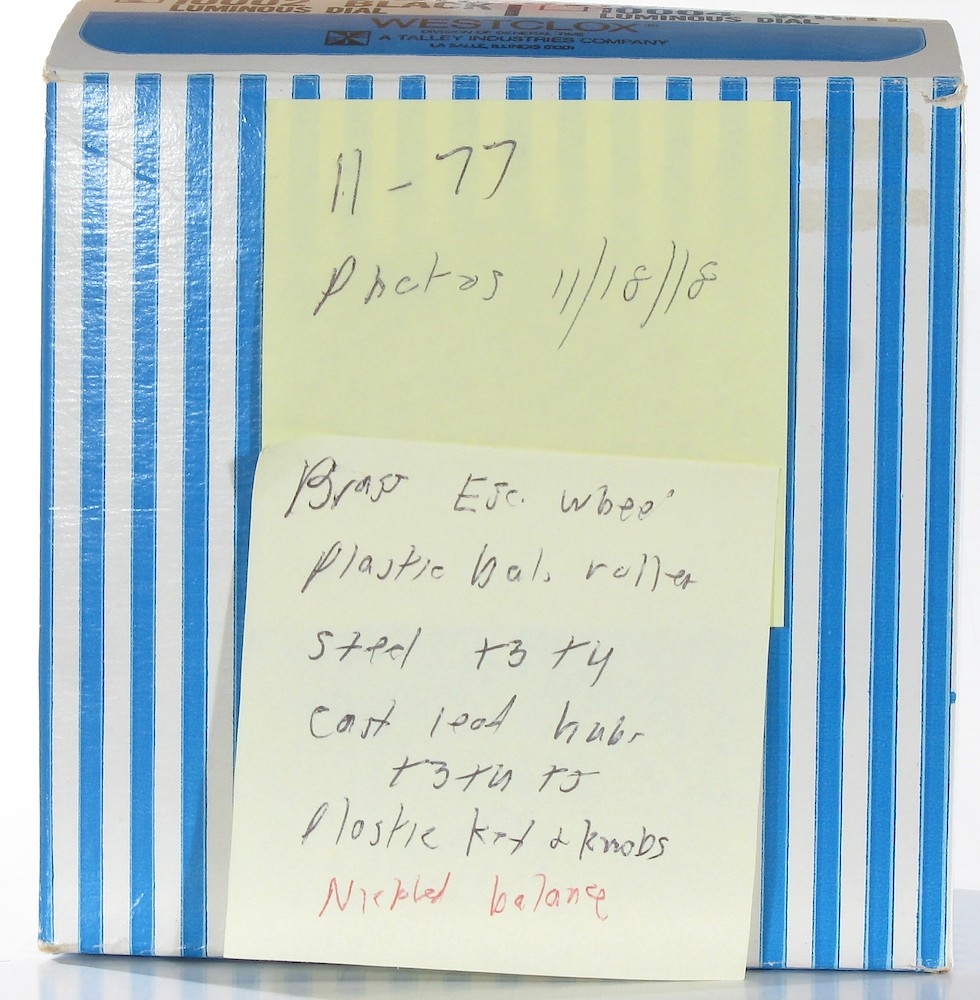 BLACK
LUMINOUS DIAL
LUMINOUS DIAL
WESTCLOX
DIVISION OF GENERAL TIME
A TALLEY INDUSTRIES COMPANY
LA SALLE, ILLINOIS 61301
11-77
Photos 11/18/18
Brass Esc. wheel
Plastic bal. roller
steel t3 t4
cast lead hubs
t3 t4 t5
Plastic key & knobs
Nickled balance